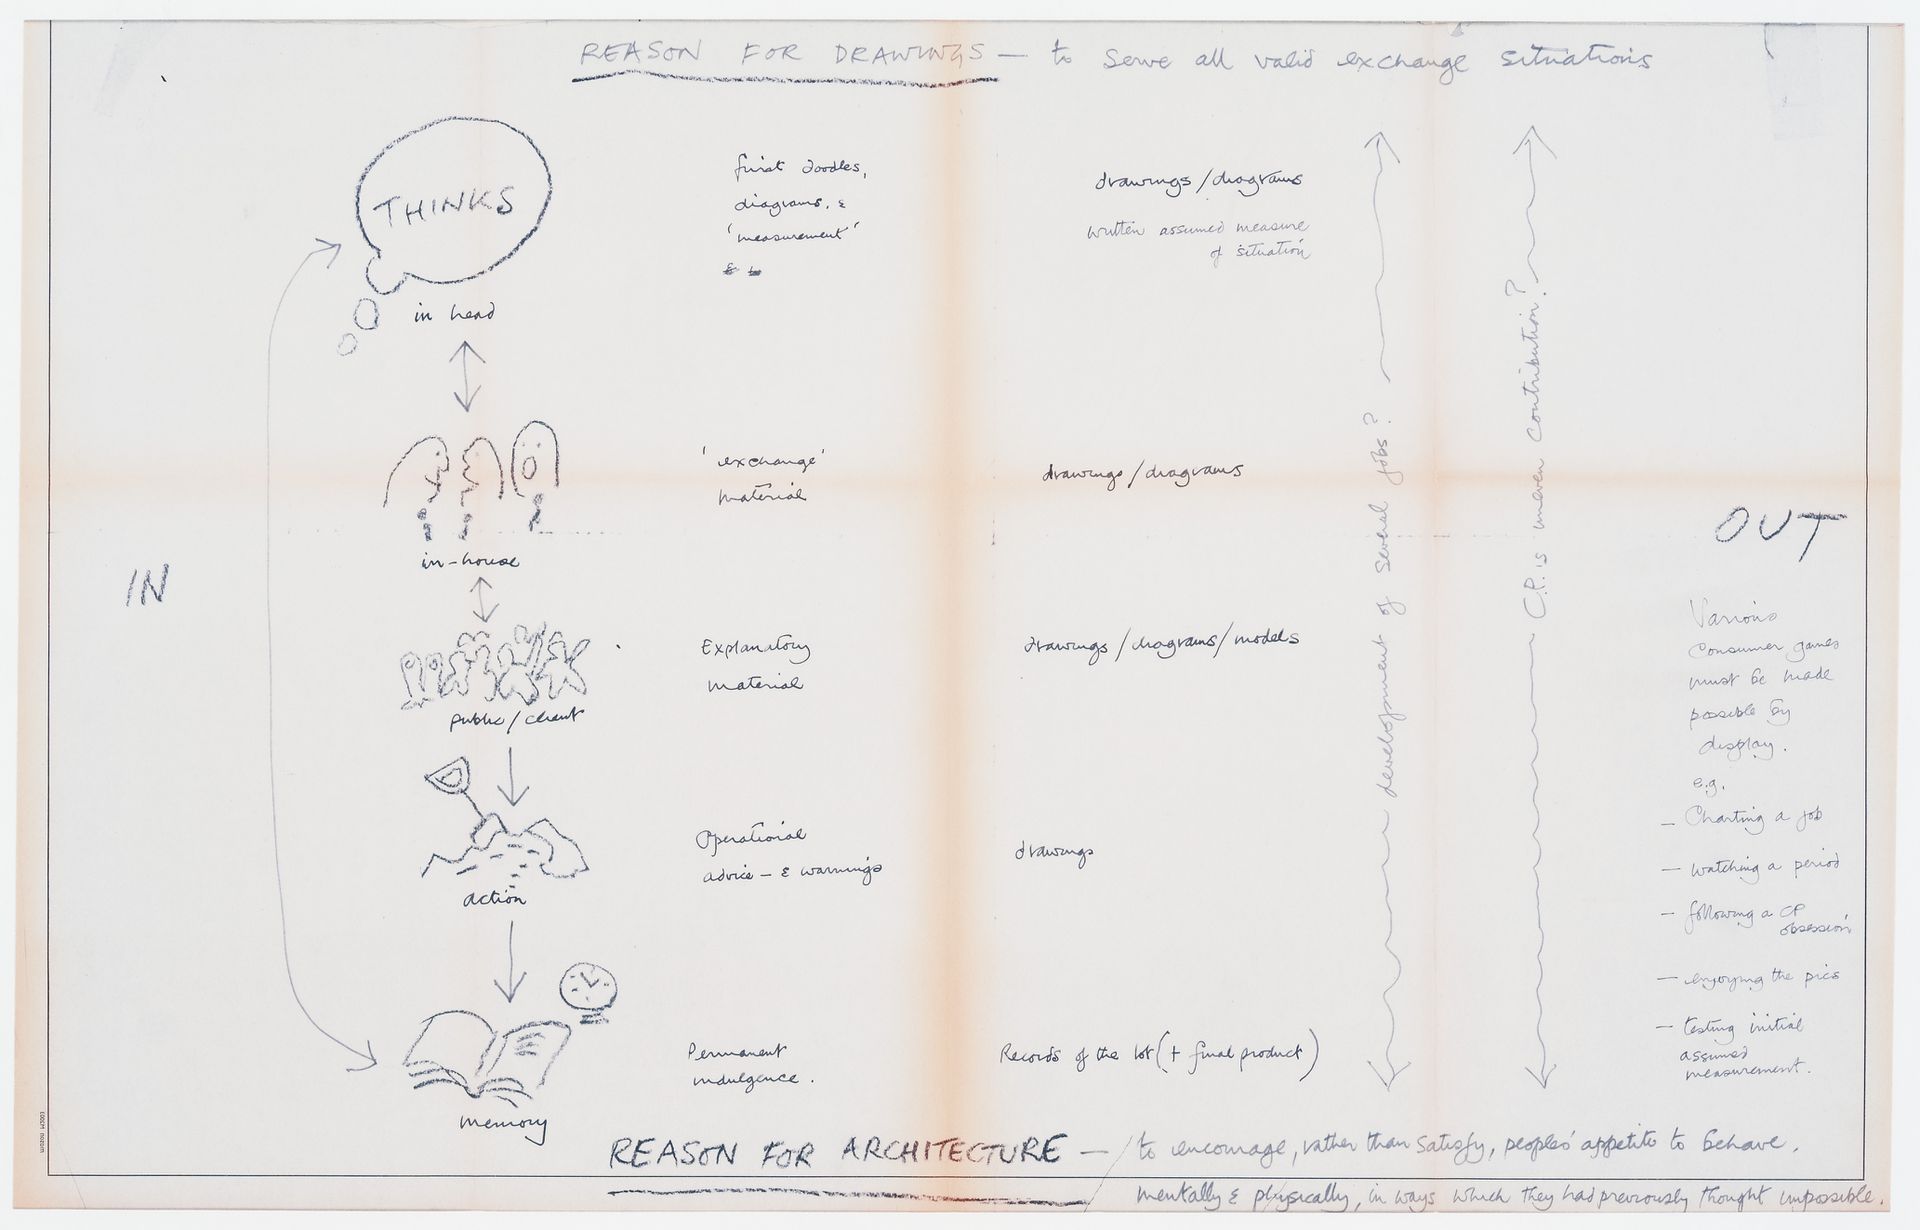 REASON FOR DRAWINGS — to serve all valid exchange situations
THINKS
in head
first doodles,
diagrams, &
'measurement'
drawings/diagrams
written assumed measure
of situation
in-house
'exchange'
material
drawings/diagrams
public/client
Explanatory
material
drawings/diagrams/models
action
Operational
advice – & warnings
drawings
memory
Permanent
indulgence.
Records of the lot (+ final product)
IN
development of several jobs?
C.P. is uneven contribution?
OUT
Various
consumer games
must be made
possible by
display.
e.g.
– Charting a job
– watching a period
– following a CP
obsession
– enjoying the pics
– testing initial
assumed
measurement.
REASON FOR ARCHITECTURE — to encourage, rather than satisfy, peoples' appetite to behave.
mentally & physically, in ways which they had previously thought impossible.